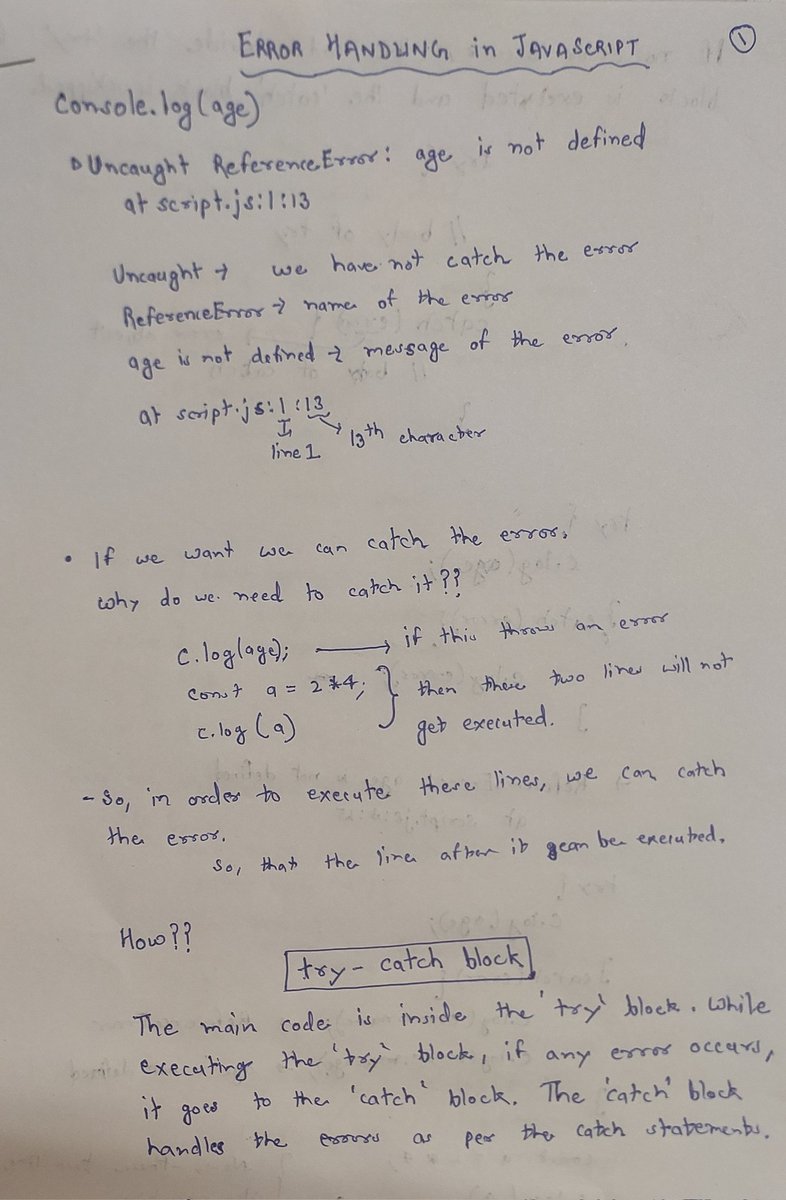 ERROR HANDLING in JAVASCRIPT
1
Console.log(age)
Uncaught ReferenceError: age is not defined
at script.js:1:13
Uncaught → we have not catch the error
ReferenceError → name of the error
age is not defined → message of the error.
at script.js:1:13
line 1 13th character
• If we want we can catch the error.
Why do we need to catch it??
c.log(age); → if this throws an error
const a = 2*4; } then these two lines will not
c.log(a) get executed.
- So, in order to execute these lines, we can catch
the error.
So, that the line after it can be executed.
How??
try-catch block
The main code is inside the 'try' block. While
executing the 'try' block, if any error occurs,
it goes to the 'catch' block. The 'catch' block
handles the errors as per the catch statements.